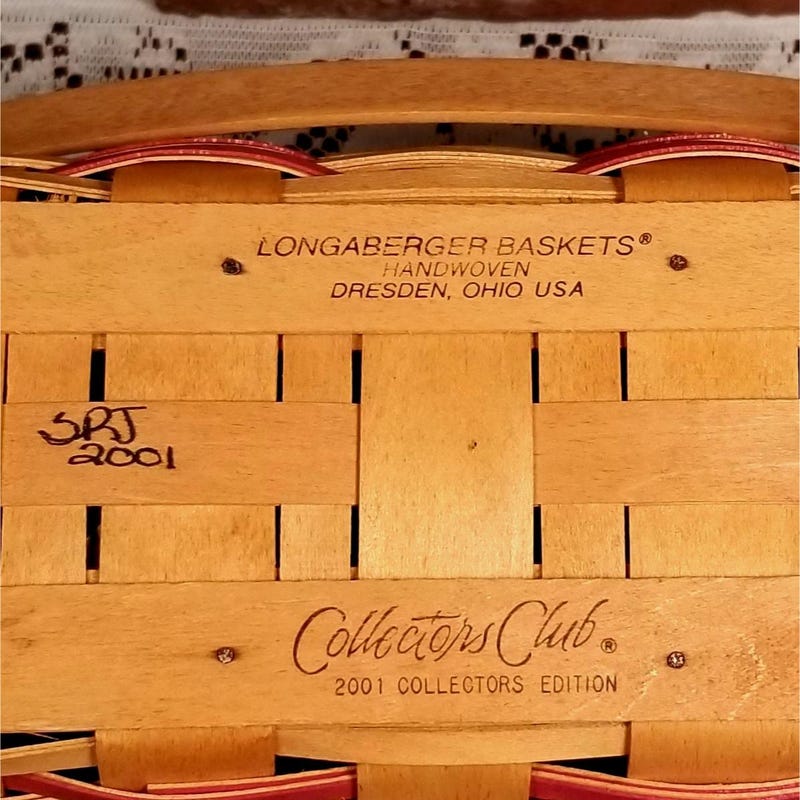 LONGABERGER BASKETS®
HANDWOVEN
DRESDEN, OHIO USA
SRJ
2001
Collectors Club®
2001 COLLECTORS EDITION